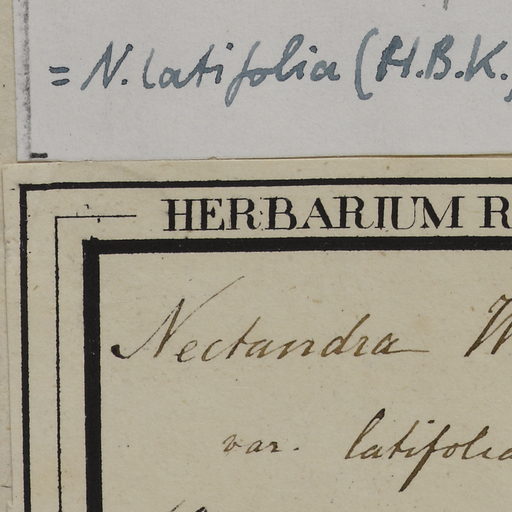 = N. latifolia (H.B.K.
HERBARIUM R
Nectandra W
var. latifolia